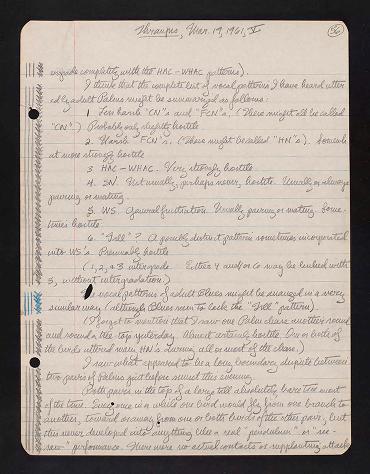 Humayas, Mar. 19, 1961, V
56
ingrade completely with the HAC - WHAC patterns).
I think that the complete list of vocal patterns I have heard utter
ed by adult Palms might be summarized as follows:
1. Less harsh "CN"s and "FCN"s. (These might all be called
"CN".) Probably only slightly hostile.
2. Harsh "FCN"s. (These might be called "HN"s). Somewhat
more strongly hostile.
3. HAC - WHAC. Very strongly hostile.
4. SN. Not usually, perhaps never, hostile. Usually or always
pairing or mating.
5. WS. General frustration. Usually pairing or mating. Some-
times hostile.
6. "Trill"? A possibly distinct pattern sometimes incorporated
into WS's. Presumably hostile.
(1, 2, & 3 intergrade. Either 4 and/or 6 may be linked with
5, without intergradation.)
The vocal patterns of adult Blues might be analyzed in a very
similar way (although Blues seem to lack the "Trill" pattern).
(I forgot to mention that I saw one Palm chase another round
and round a tree top yesterday. Almost certainly hostile. One or both of
the birds uttered many HN's during all or most of the chase.)
I saw what appeared to be a long boundary dispute between
two pairs of Palms just before sunset this evening.
Both pairs in the top of a large tall absolutely bare tree most
of the time. Every once in a while one bird would fly from one branch to
another, toward or away from one or both birds of the other pair, but
this never developed into anything like a real "pendulum" or "see-
saw" performance. There were no actual contacts or supplanting attacks